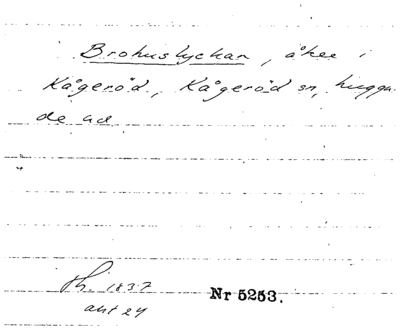 Brohuslyckan, åker i
Kågeröd, Kågeröd sn, Luggu-
de hd
Th. 1837
akt 24
Nr 5253.